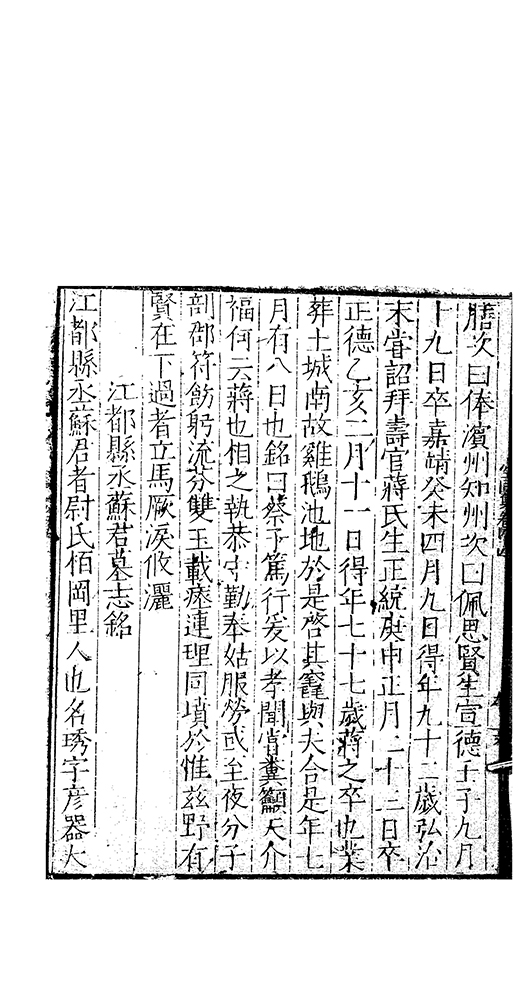 膳次曰俸濱州知州次曰佩思賢生宣德壬子九月
十九日卒嘉靖癸未四月九日得年九十二歲弘治
末嘗詔拜壽官蔣氏生正統庚申正月二十二日卒
正德乙亥二月十一日得年七十七歲蔣之卒也業
葬土城南故雞鵝池地於是啓其竁與大合是年七
月有八日也銘曰蔡子篤行爰以孝聞嘗糞籲天介
福何云蔣也相之執恭守勤奉姑服勞或至夜分子
剖郡符飭躬流芬雙玉載瘞連理同墳於惟茲野有
賢在下過者立馬厥淚攸灑
江都縣丞蘇君墓志銘
江都縣丞蘇君者尉氏栢岡里人也名琇字彥器大